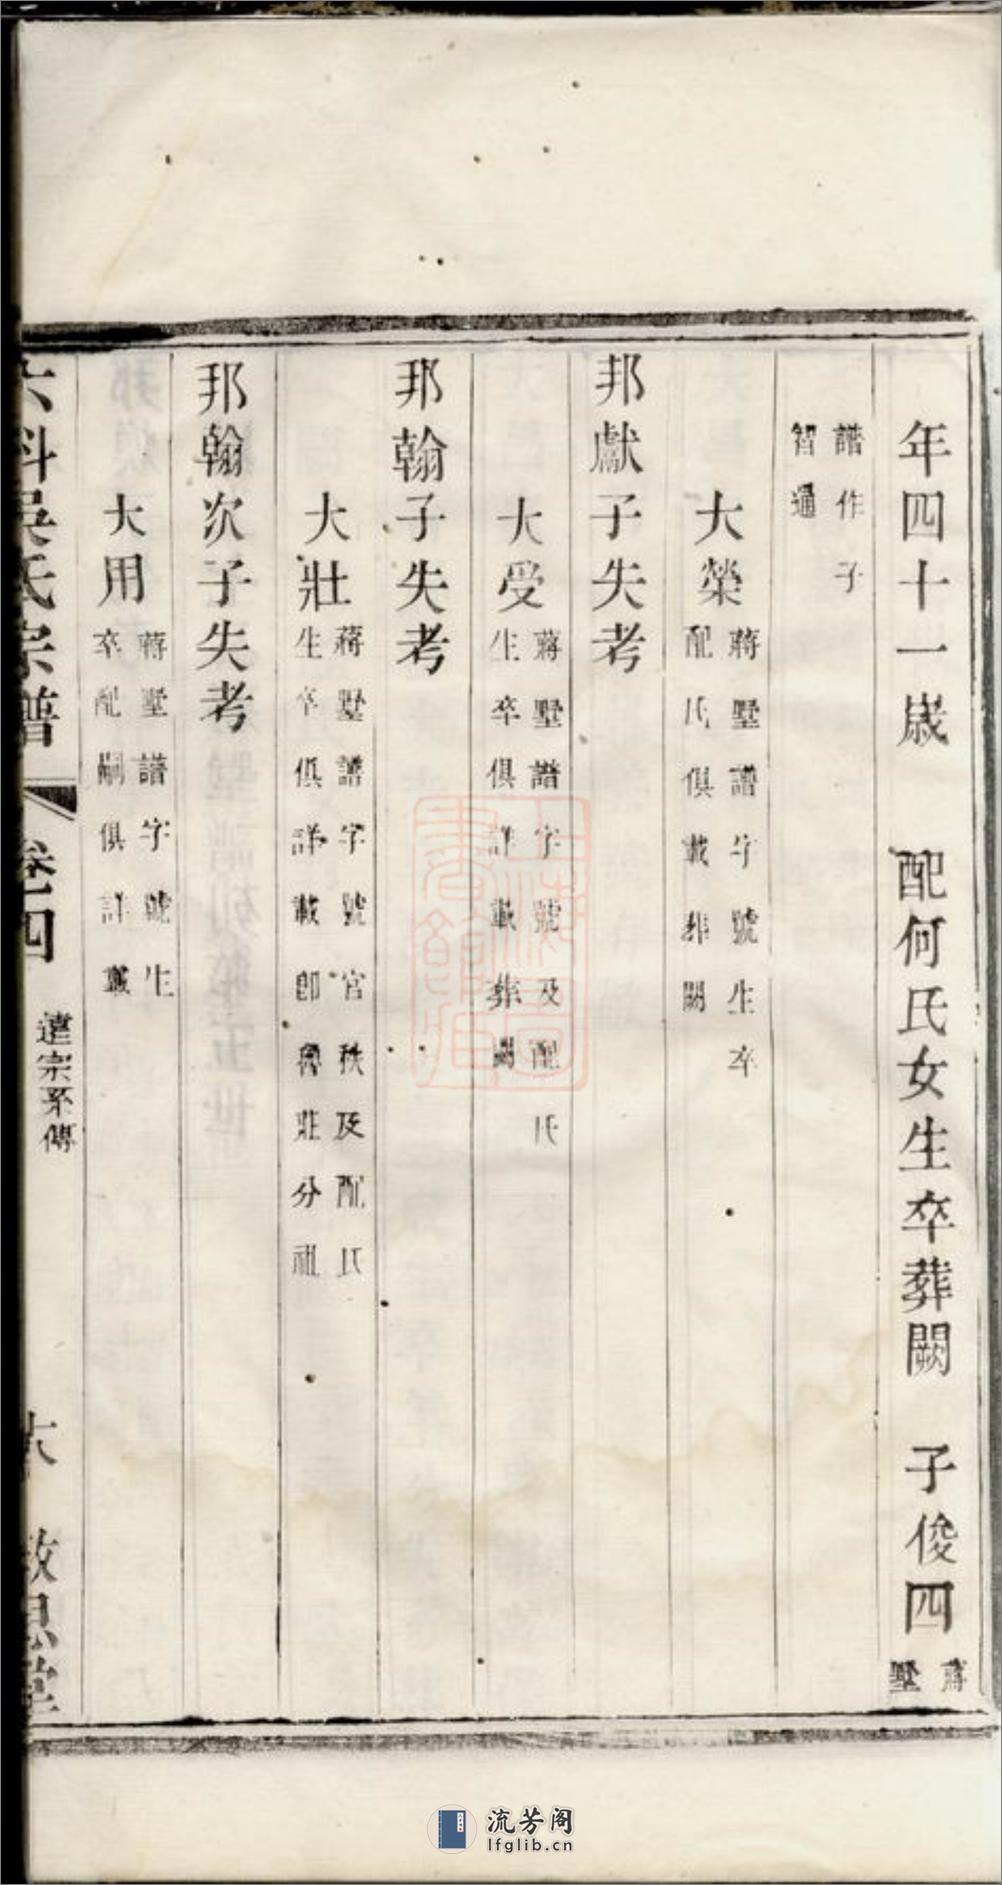 年四十一歲　配何氏女生卒葬闕　子俊四蔣墅
譜作子
智通
大榮
蔣墅譜字號生卒
配氏俱載葬闕
邦獻子失考
大受
蔣墅譜字號及配氏
生卒俱詳載葬闕
邦翰子失考
大壯
蔣墅譜字號官秩及配氏
生卒俱詳載即魯莊分祖
邦翰次子失考
大用
蔣墅譜字號生
卒配嗣俱詳載
吳氏宗譜
卷四
遠宗系傳
六
敦思堂
上海圖書館藏
流芳阁
lfglib.cn